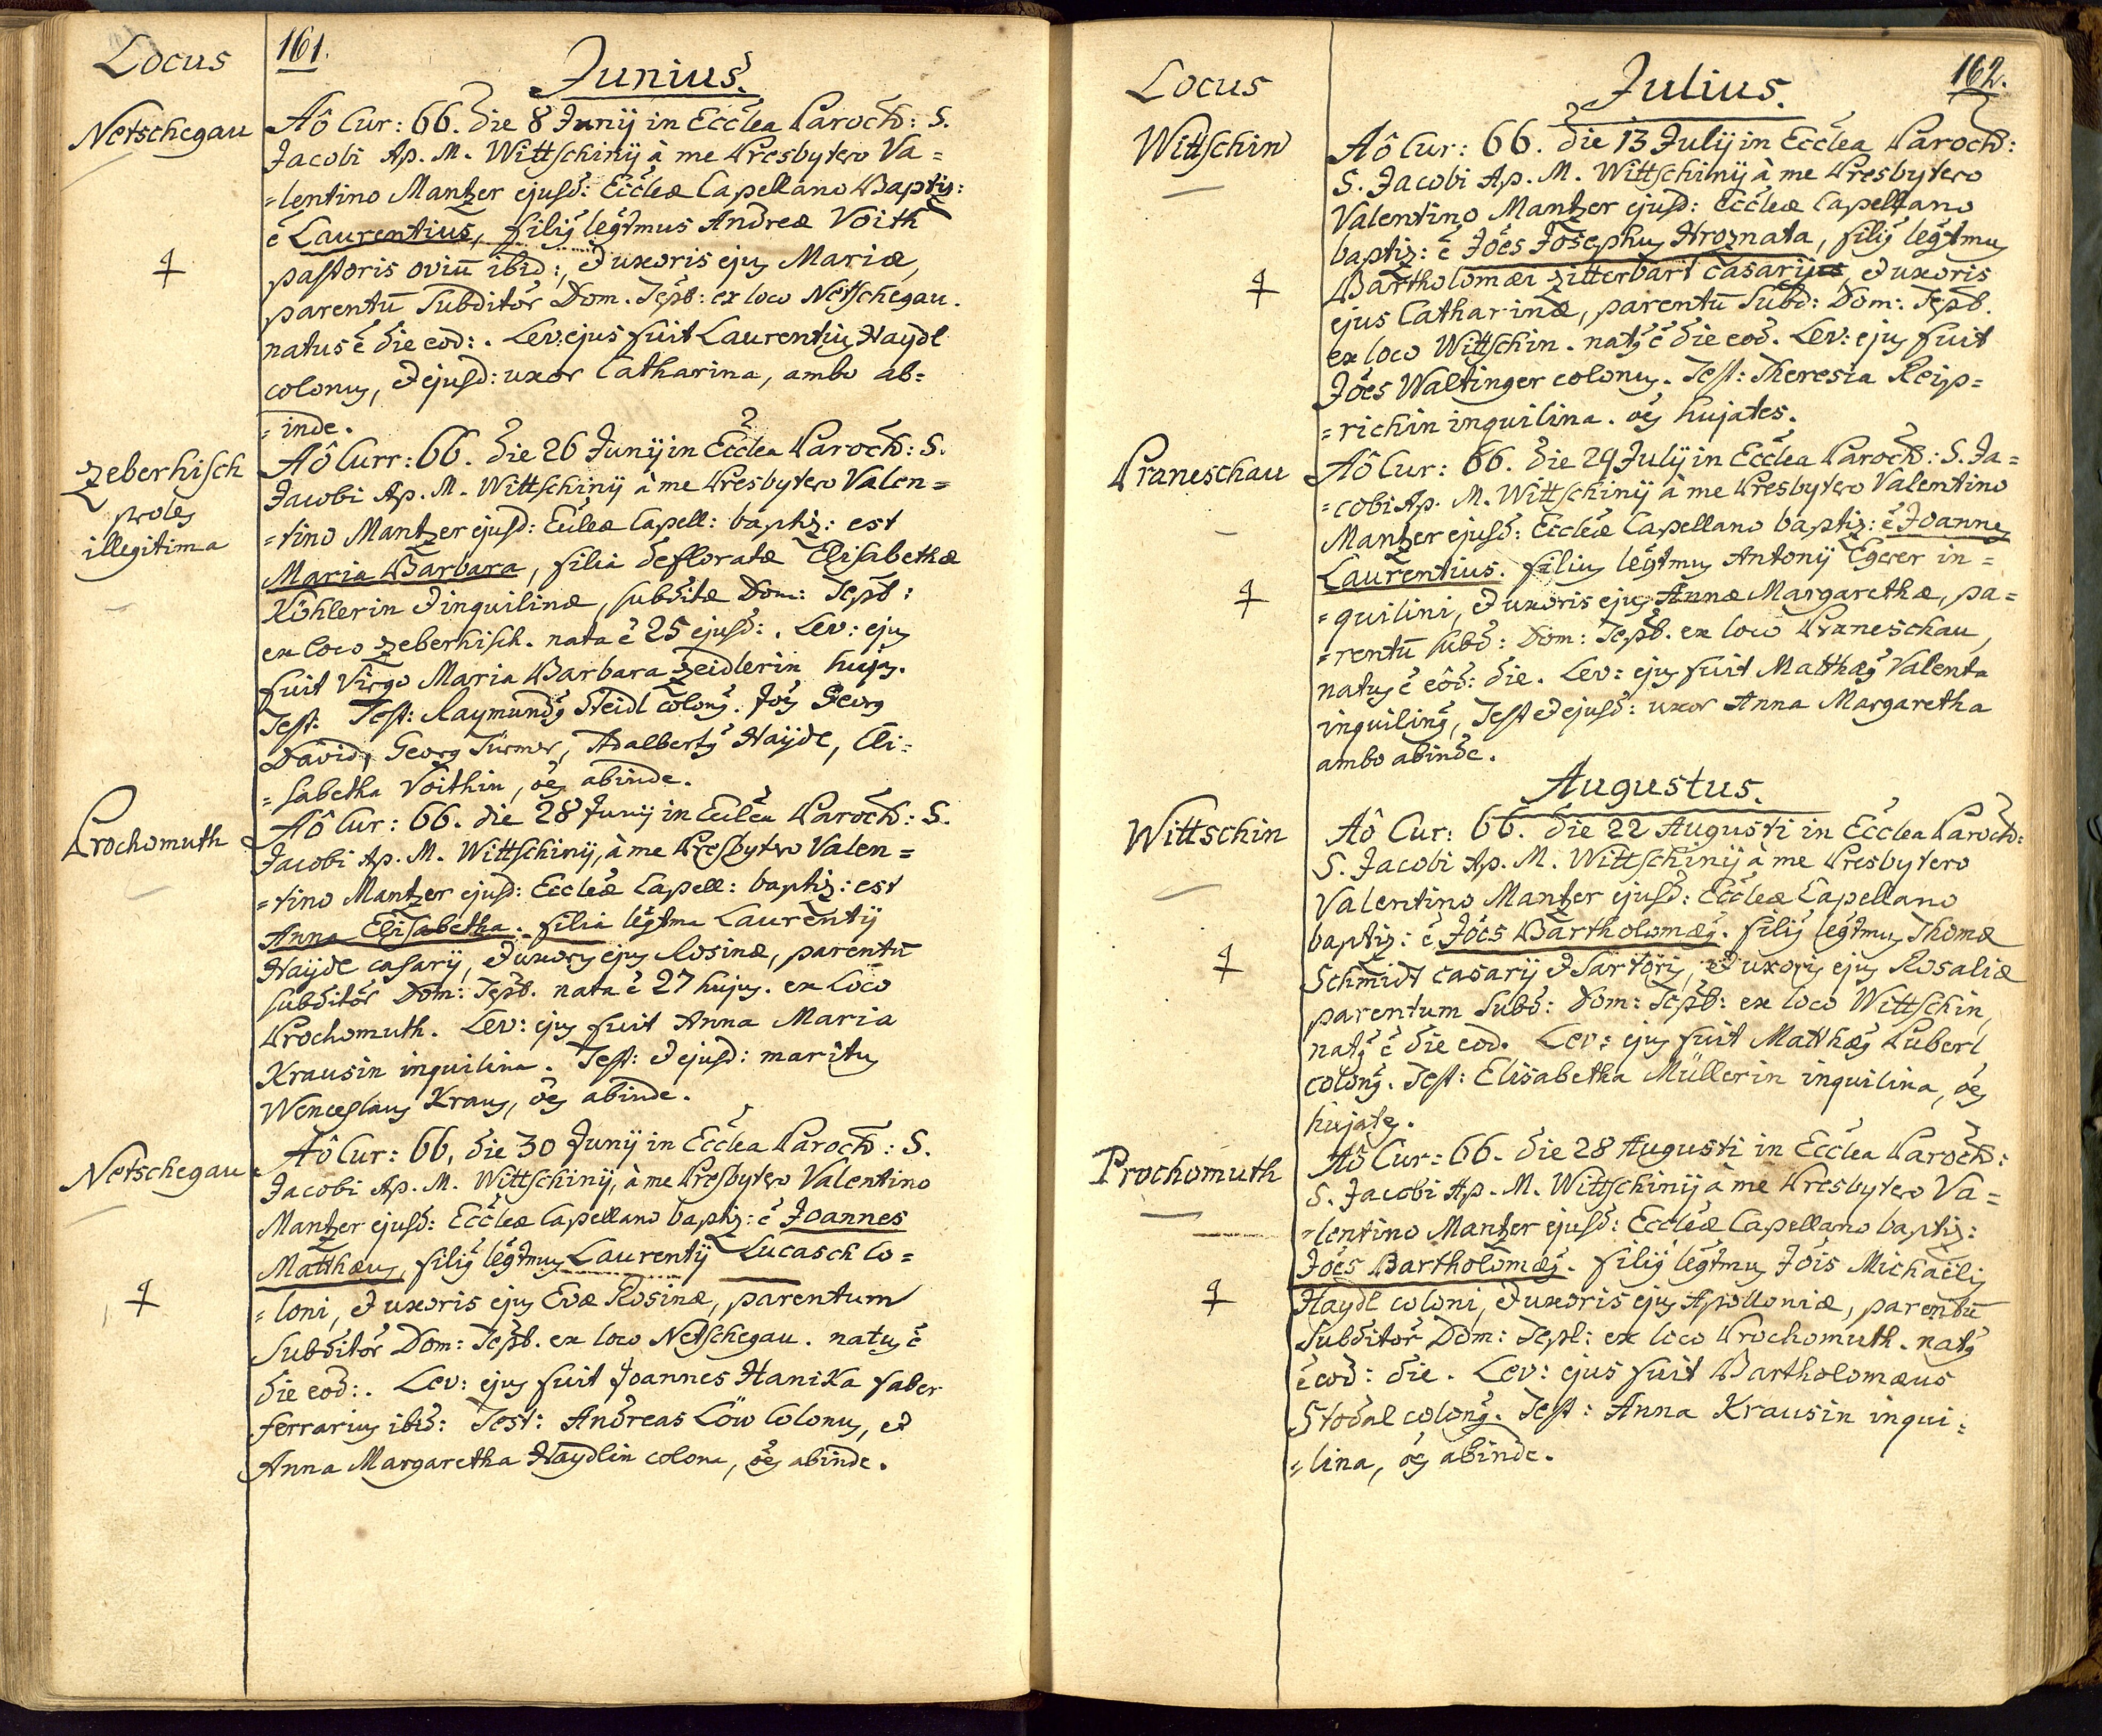 Locus
161.
Junius.
Netschegau
Aô Cur: 66. die 8 Junij in Ecclea Paroch: S.
Jacobi Ap. M. Wittschinij à me Presbytero Va=
=lentino Mantzer ejusd: Eccleæ Capellano Baptiz:
ē Laurentius, filiꝯ legtmus Andreæ Voith
pastoris oviū ibid:, et uxoris ejꝯ Mariæ,
parentū Subditor Dom. Tepl: ex loco Netschegau.
natus ē die eod:. Lev: ejus fuit Laurentiꝯ Haydl
colonꝯ, et ejusd: uxor Catharina, ambo ab=
=inde.
Zeberhisch
proles
illegitima
Aô Curr: 66. die 26 Junij in Ecclea Paroch: S.
Jacobi Ap. M. Wittschinij à me Presbytero Valen=
=tino Mantzer ejusd: Eccleæ Capell: baptiz: est
Maria Barbara, filia defloratæ Elisabethæ
Köhlerin et inquilinæ, subditæ Dom: Tepl:
ex loco Zeberhisch. nata ē 25 ejusd:. Lev: ejꝯ
fuit Virgo Maria Barbara Zeidlerin hujꝯ.
Test: Test: Raymundꝯ Steidl colonꝯ. Joꝯ Georg
David, Georg Türmer, Adalbertꝯ Haydl, Eli=
=sabetha Voithin, oēs abinde.
Prochomuth
Aô Cur: 66. die 28 Junij in Ecclea Paroch: S.
Jacobi Ap. M. Wittschinij, à me Presbytero Valen=
=tino Mantzer ejusd: Eccleæ Capell: baptiz: est
Anna Elisabetha. filia legtma Laurentij
Haydl casarij, et uxorꝯ ejꝯ Rosinæ, parentū
subditor Dom: Tepl. nata ē 27 hujꝯ. ex loco
Prochomuth. Lev: ejꝯ fuit Anna Maria
Krausin inquilina. Test: et ejusd: maritꝯ
Wenceslaus Kraus, oēs abinde.
Netschegau
Aô Cur: 66, die 30 Junij in Ecclea Paroch: S.
Jacobi Ap. M. Wittschinij, à me Presbytero Valentino
Mantzer ejusd: Eccleæ Capellano baptiz: ē Joannes
Matthæus, filiꝯ legtmꝯ Laurentij Lucasch co=
=loni, et uxoris ejꝯ Evæ Rosinæ, parentum
Subditor Dom: Tepl. ex loco Netschegau. natꝯ ē
die eod:. Lev: ejꝯ fuit Joannes Hanika faber
ferrariꝯ ibid: Test: Andreas Löw Colonꝯ, et
Anna Margaretha Haydlin colona, oēs abinde.
Locus
Julius.
162.
Wittschin
Aô Cur: 66. die 13 Julij in Ecclea Paroch:
S. Jacobi Ap. M. Wittschinij à me Presbytero
Valentino Mantzer ejusd: Eccleæ Capellano
baptiz: ē Joēs Josephꝯ Hroznata, filiꝯ legtmꝯ
Bartholomæi Zitterbart casarij, et uxoris
ejus Catharinæ, parentū Subd: Dom: Tepl.
ex loco Wittschin. natꝯ ē die eod. Lev: ejꝯ fuit
Joēs Waltinger colonꝯ. Test: Theresia Reip=
=richin inquilina. oēs hujates.
Praneschau
Aô Cur: 66. die 29 Julij in Ecclea Paroch: S. Ja=
=cobi Ap. M. Wittschinij à me Presbytero Valentino
Mantzer ejusd: Eccleæ Capellano baptiz: ē Joannes
Laurentius. filiꝯ legtmꝯ Antonij Egerer in=
=quilini, et uxoris ejꝯ Annæ Margarethæ, pa=
=rentū subd: Dom: Tepl. ex loco Praneschau,
natꝯ ē eod: die. Lev: ejꝯ fuit Matthæꝯ Valenta
inquilinꝯ, Test et ejusd: uxor Anna Margaretha
ambo abinde.
Augustus.
Wittschin
Aô Cur: 66. die 22 Augusti in Ecclea Paroch:
S. Jacobi Ap. M. Wittschinij à me Presbytero
Valentino Mantzer ejusd: Eccleæ Capellano
baptiz: ē Joēs Bartholomæꝯ. filiꝯ legtmꝯ Thomæ
Schmidt casarij et Sartoris, et uxoris ejꝯ Rosaliæ
parentum Subd: Dom: Tepl: ex loco Wittschin,
natꝯ ē die eod. Lev: ejꝯ fuit Matthæꝯ Puberl
colonꝯ. Test: Elisabetha Müllerin inquilina, oēs
hujates.
Prochomuth
Aô Cur: 66. die 28 Augusti in Ecclea Paroch:
S. Jacobi Ap. M. Wittschinij à me Presbytero Va=
=lentino Mantzer ejusd: Eccleæ Capellano baptiz:
Joēs Bartholomæꝯ. filiꝯ legtmꝯ Jois Michaëlis
Haydl coloni, et uxoris ejꝯ Apolloniæ, parentū
Subditor Dom: Tepl: ex loco Prochomuth. natꝯ
ē eod: die. Lev: ejus fuit Bartholomæus
Stodal colonꝯ. Test: Anna Krausin inqui=
=lina, oēs abinde.